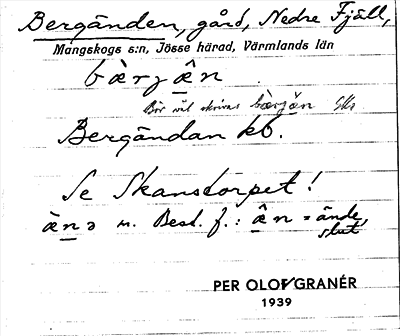 Bergänden, gård, Nedre Fjäll,
Mangskogs s:n, Jösse härad, Värmlands län
bæ̀rjân
Bör väl skrivas bærjän
Bergändan kb.
Se Skanstorpet!
æ̀nə n. Best. f.: ân = ände,
slut
PER OLOF GRANÉR
1939